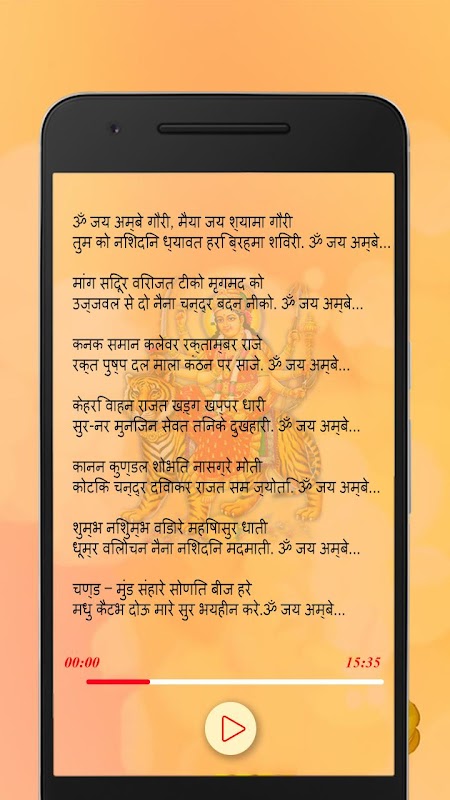 ॐ जय अम्बे गौरी, मैया जय श्यामा गौरी
तुम को नशिदनि ध्यावत हरि ब्रहमा शविरी. ॐ जय अम्बे...
मांग सदिूर वरिाजत टीको मृगमद को
उज्जवल से दो नैना चन्द्र बदन नीको. ॐ जय अम्बे...
कनक समान कलेवर रक्ताम्बर राजे
रक्त पुष्प दल माला कंठन पर साजे. ॐ जय अम्बे...
केहरि वाहन राजत खड़्ग खप्पर धारी
सुर-नर मुनजिन सेवत तनिके दुखहारी. ॐ जय अम्बे...
कानन कुण्डल शोभति नासग्रे मोती
कोटकि चन्द्र दविाकर राजत सम ज्योति. ॐ जय अम्बे...
शुम्भ नशिुम्भ वडिारे महषिासुर धाती
धूम्र वलिोचन नैना नशिदनि मदमाती. ॐ जय अम्बे...
चण्ड – मुंड संहारे सोणति बीज हरे
मधु कैटभ दोऊ मारे सुर भयहीन करे.ॐ जय अम्बे...
00:00 15:35